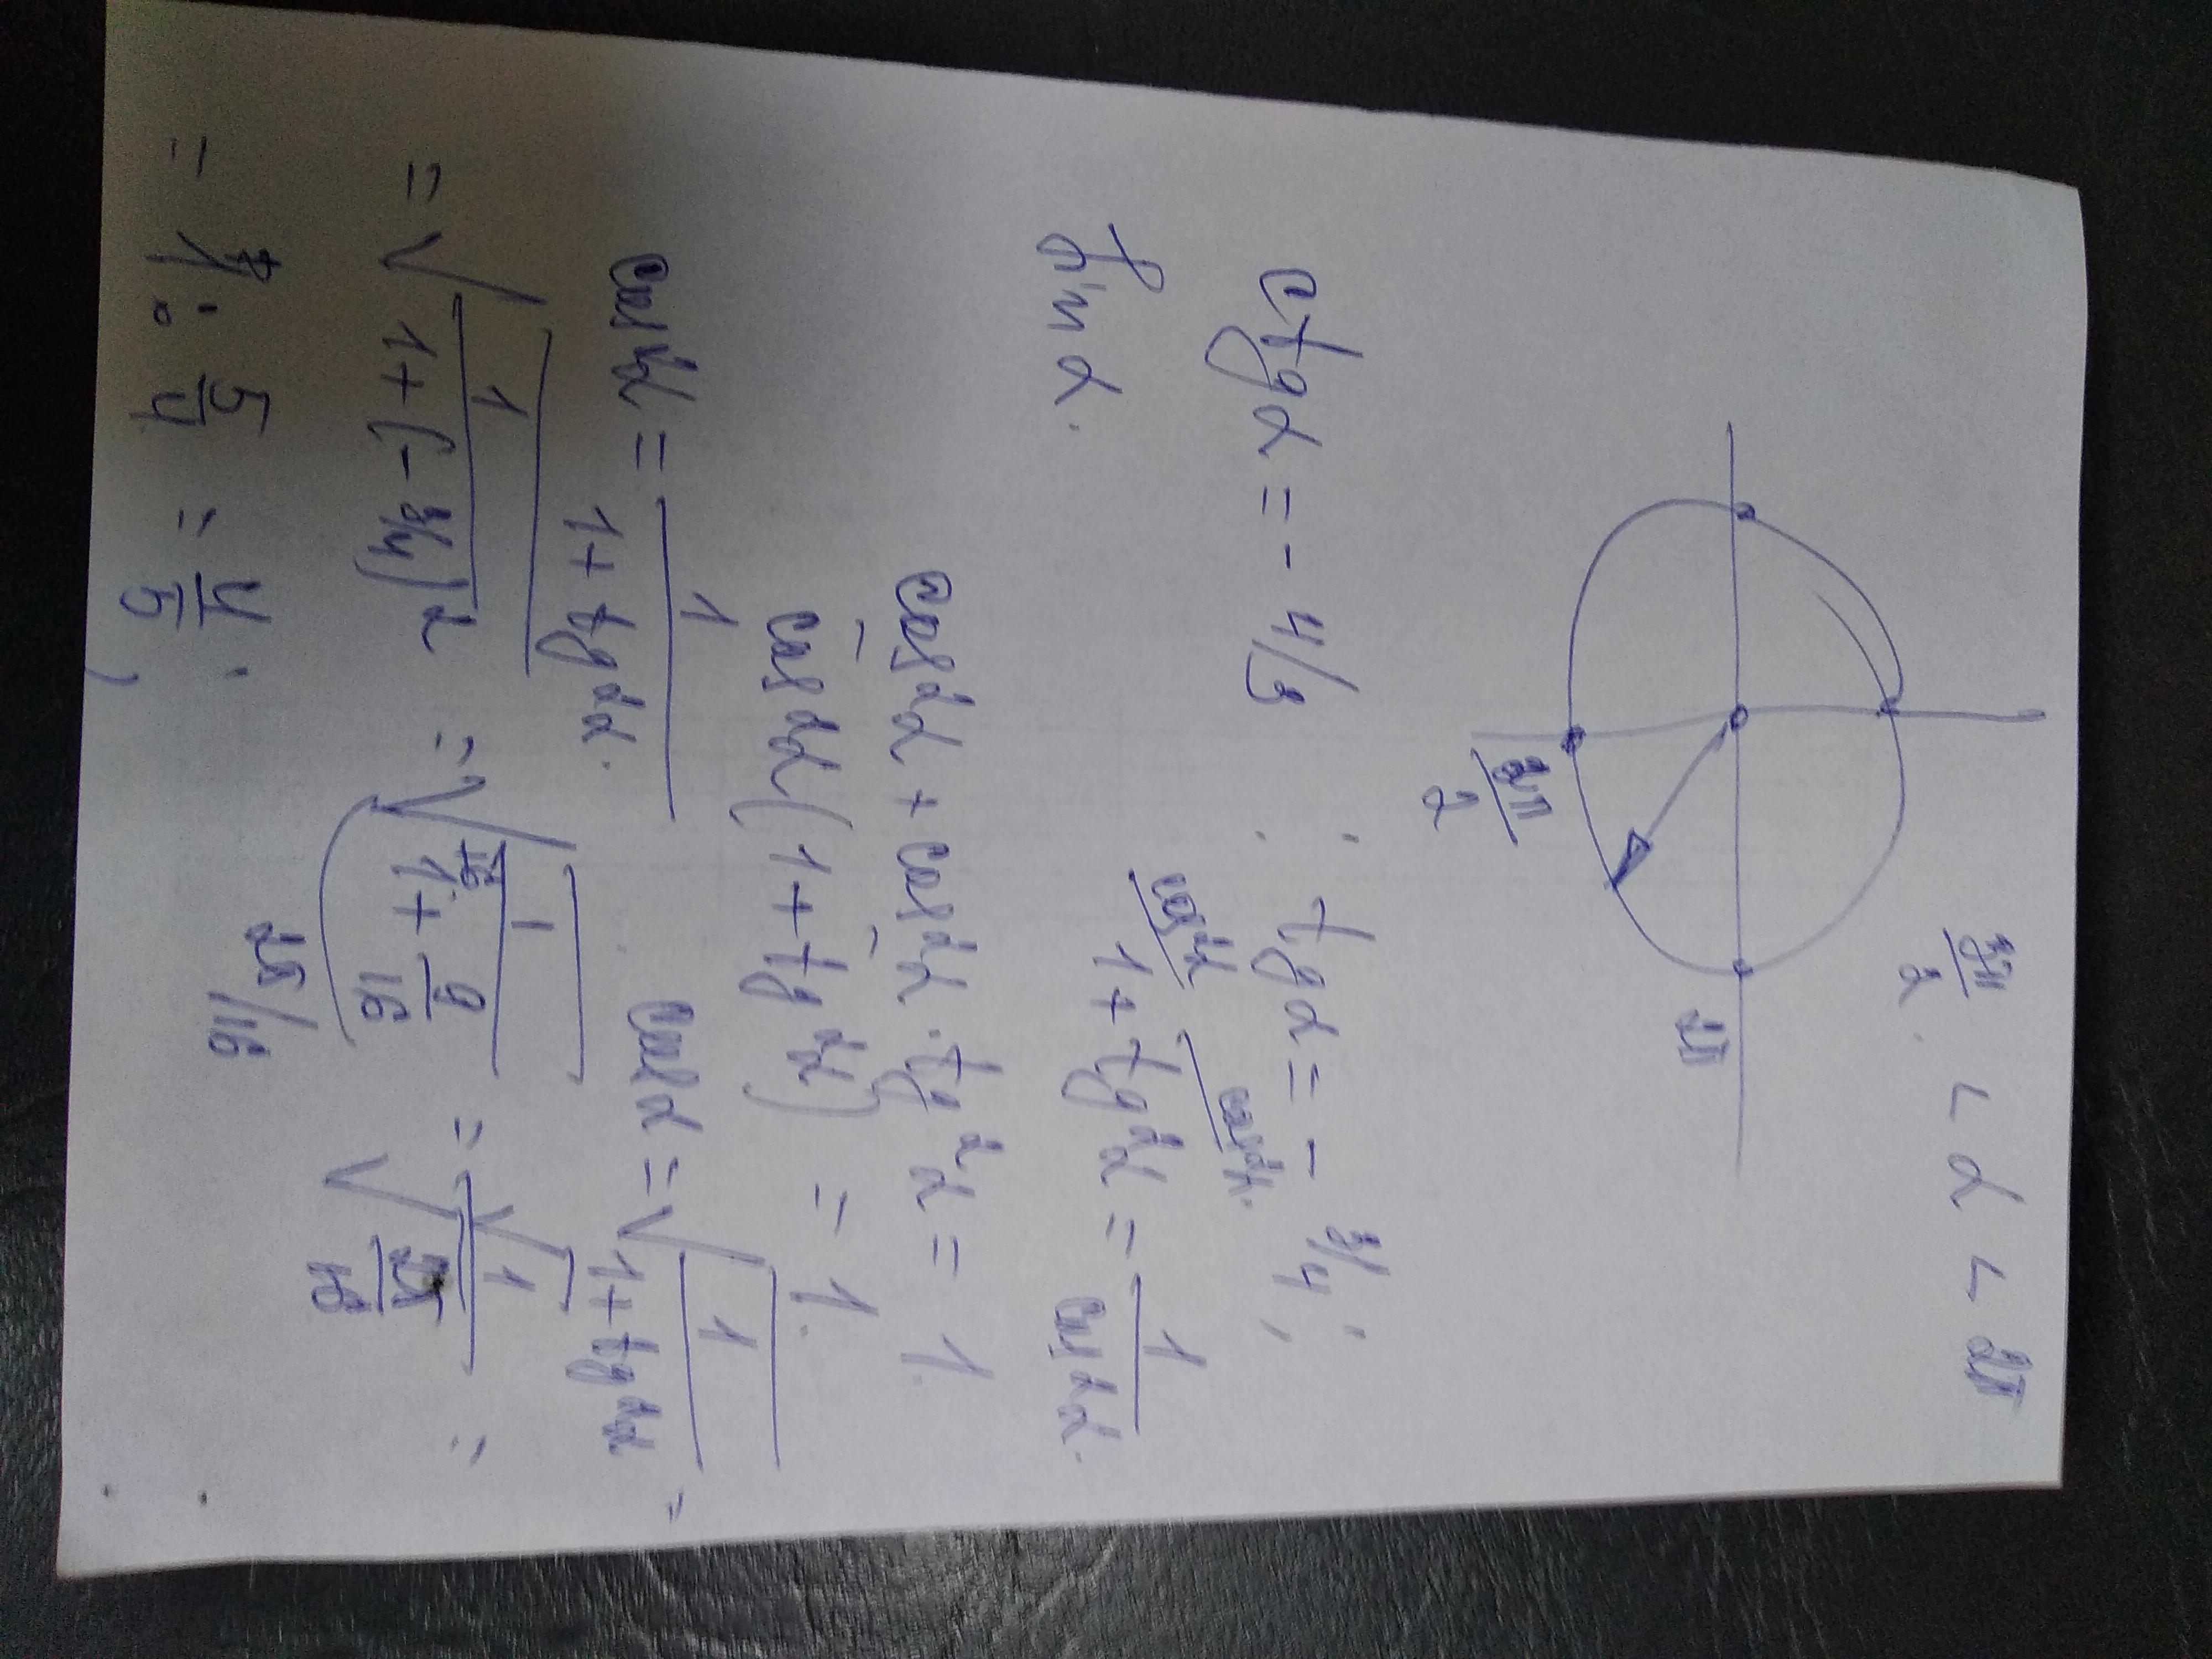 3π/2 < α < 2π
2π
3π/2
ctgα = - 4/3 ; tgα = - 3/4 ;
cos²α cos²α
sin α. 1 + tg²α = 1/cos²α.
cos²α + cos²α · tg²α = 1.
cos²α (1 + tg²α) = 1.
cos²α = 1/(1 + tg²α). cosα = √(1/(1+tg²α)) =
= √(1/(1+(-3/4)²)) = √(1/(1 + 9/16)) = √(1/(25/16)) =
25/16
= 1 : 5/4 = 4/5.